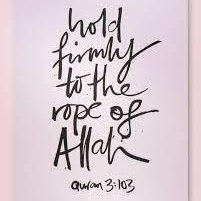 hold
firmly
to the
rope of
Allah
quran 3:103